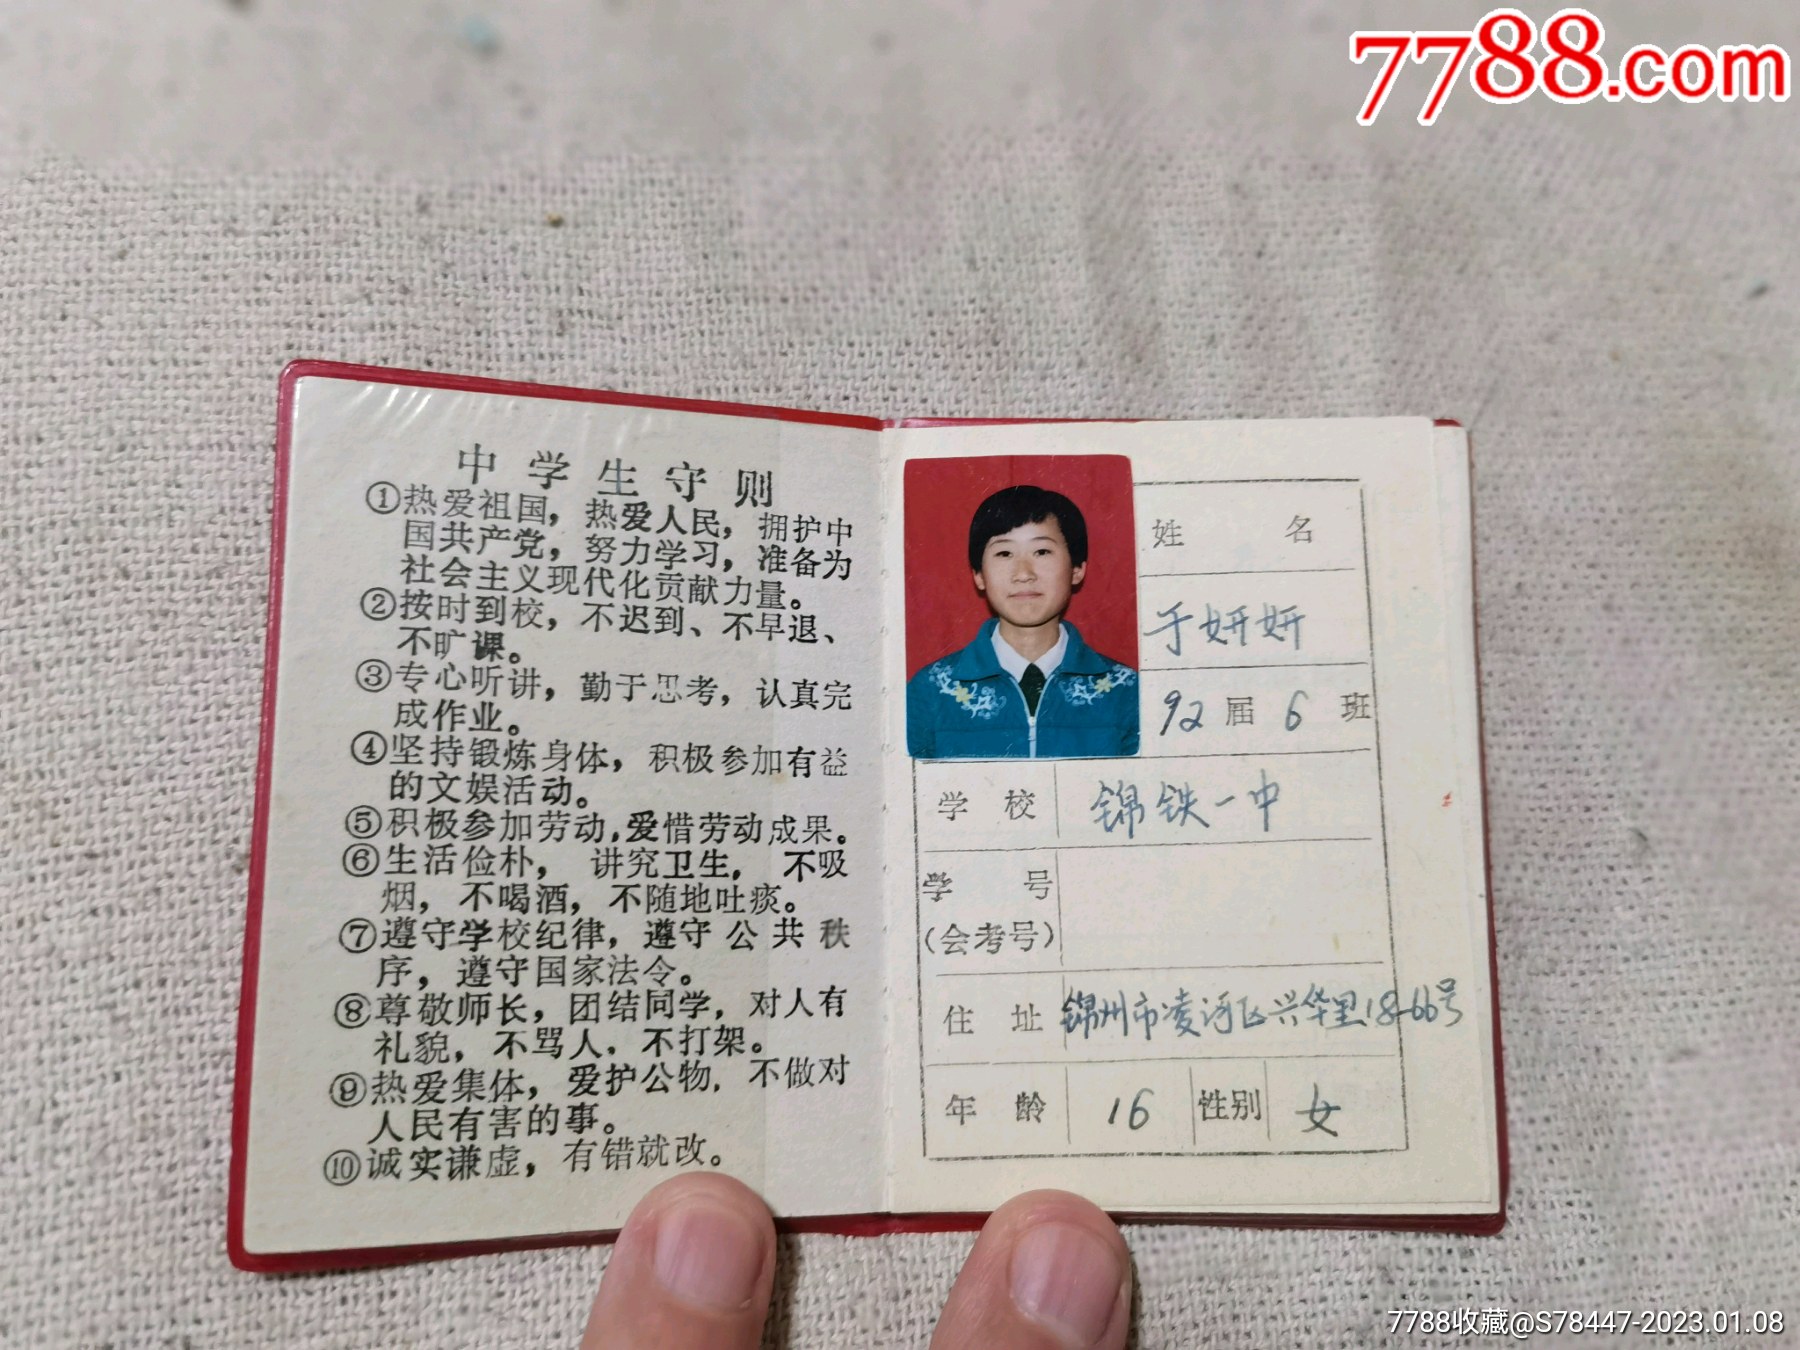 7788.com
中学生守则
①热爱祖国，热爱人民，拥护中
国共产党，努力学习，准备为
社会主义现代化贡献力量。
②按时到校，不迟到、不早退、
不旷课。
③专心听讲，勤于思考，认真完
成作业。
④坚持锻炼身体，积极参加有益
的文娱活动。
⑤积极参加劳动，爱惜劳动成果。
⑥生活俭朴，讲究卫生，不吸
烟，不喝酒，不随地吐痰。
⑦遵守学校纪律，遵守公共秩
序，遵守国家法令。
⑧尊敬师长，团结同学，对人有
礼貌，不骂人，不打架。
⑨热爱集体，爱护公物，不做对
人民有害的事。
⑩诚实谦虚，有错就改。
姓名
于妍妍
92届6班
学校 锦铁一中
学号
（会考号）
住址 锦州市凌河区兴华里18-66号
年龄 16 性别 女
7788收藏@S78447-2023.01.08